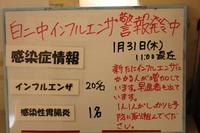 自二中インフルエンザ警報発令中
感染症情報
1月31日(木)
11:00 最近
インフルエンザ
20名
感染性胃腸炎
1名
新たにインフルエンザに
かかる人が増えの
います。早退者も出て
います。
1人1人がしっかりと予
防に取り組んでくださ
い。